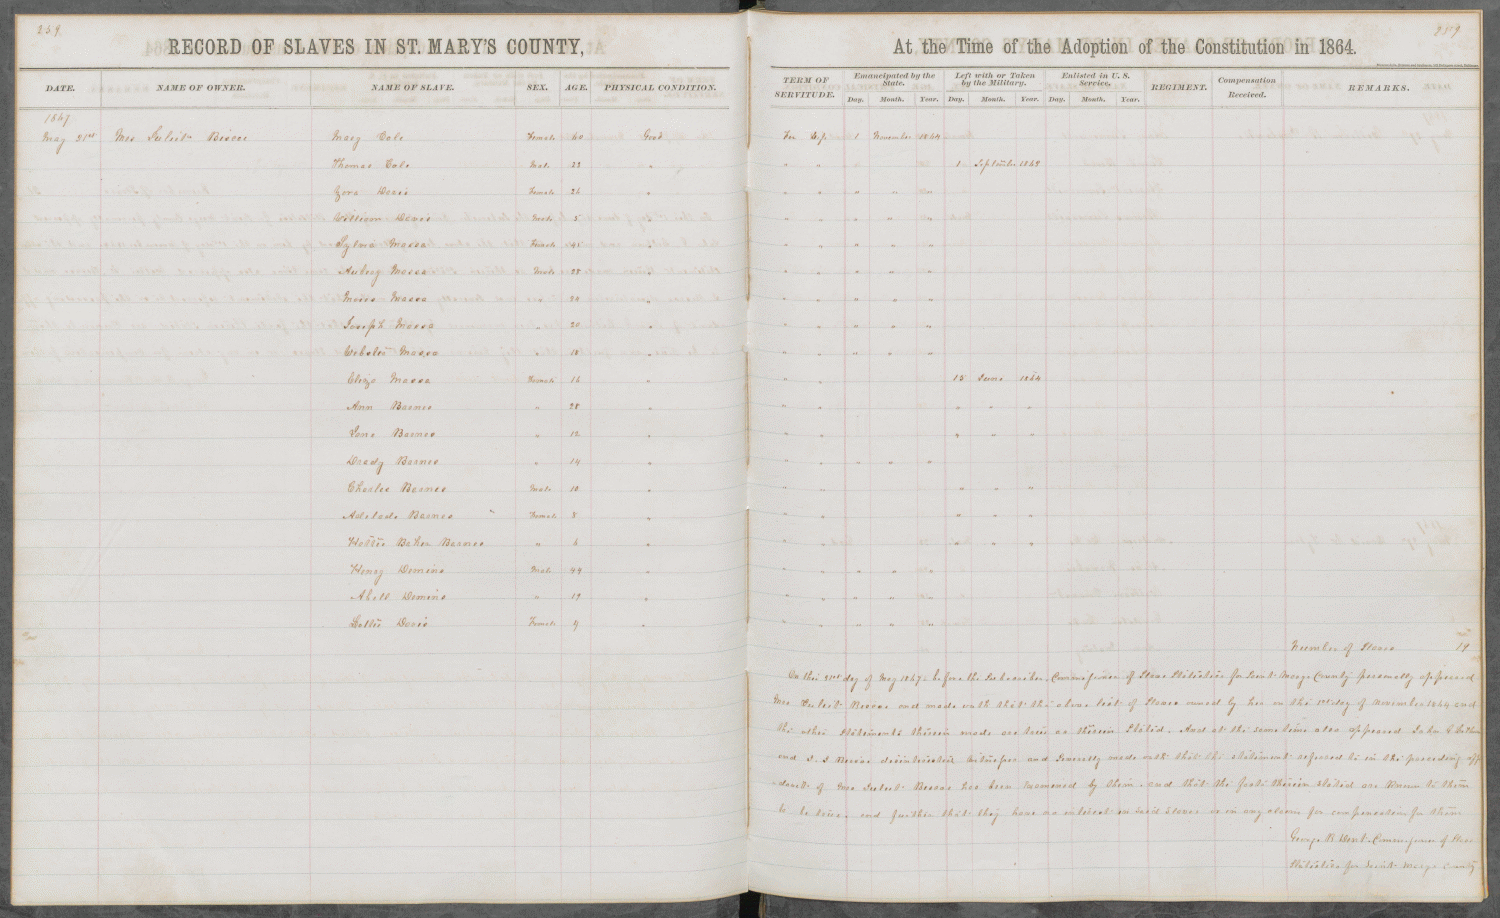 259
RECORD OF SLAVES IN ST. MARY'S COUNTY,
DATE. NAME OF OWNER. NAME OF SLAVE. SEX. AGE. PHYSICAL CONDITION.
1867
May 21st Mrs Juliet Biscoe Mary Cole Female 60 Good
Thomas Cole Male 22 "
Davis Female 26 "
William Davis Male 5 "
Sylvia Mason Female 45 "
Aubery Mason Male 28 "
Mason " 24 "
Joseph Mason " 20 "
Webster Mason " 18 "
Eliza Mason Female 16 "
Ann Barnes " 28 "
Jane Barnes " 12 "
Barnes " 14 "
Charles Barnes Male 10 "
Adelade Barnes Female 8 "
Hattie Baker Barnes " 6 "
Henry Male 44 "
" 19 "
Lettie Davis Female 4 "
259
At the Time of the Adoption of the Constitution in 1864.
TERM OF SERVITUDE. Emancipated by the State. Left with or Taken by the Military. Enlisted in U. S. Service. REGIMENT. Compensation Received. REMARKS.
Day. Month. Year. Day. Month. Year. Day. Month. Year.
For Life 1 November 1864
" " 1 September 1864
" " " " "
" " " " "
" " " " "
" " " " "
" " " " "
" " " " "
" " " " "
" " 15 June 1864
" " " " "
" " " " "
" " " " "
" " " " "
" " " " "
" " " " "
" " " " "
" " " " "
" " " " "
Number of Slaves 19
On this 21st day of May 1867 before the Subscriber, Commissioner of Slave Statistics for Saint Marys County personally appeared
Mrs Juliet Biscoe and made oath that the above list of Slaves owned by her on the 1st day of November 1864 and
the other statements therein made are true as therein stated. And at the same time also appeared John
and Biscoe disinterested witnesses and severally made oath that the statement referred to in the preceding affi
davit of Mrs Juliet Biscoe has been examined by them, and that the facts therein stated are known to them
to be true, and further that they have no interest in said slaves or in any claim for compensation for them
George B Dent Commissioner of Slave
Statistics for Saint Marys County